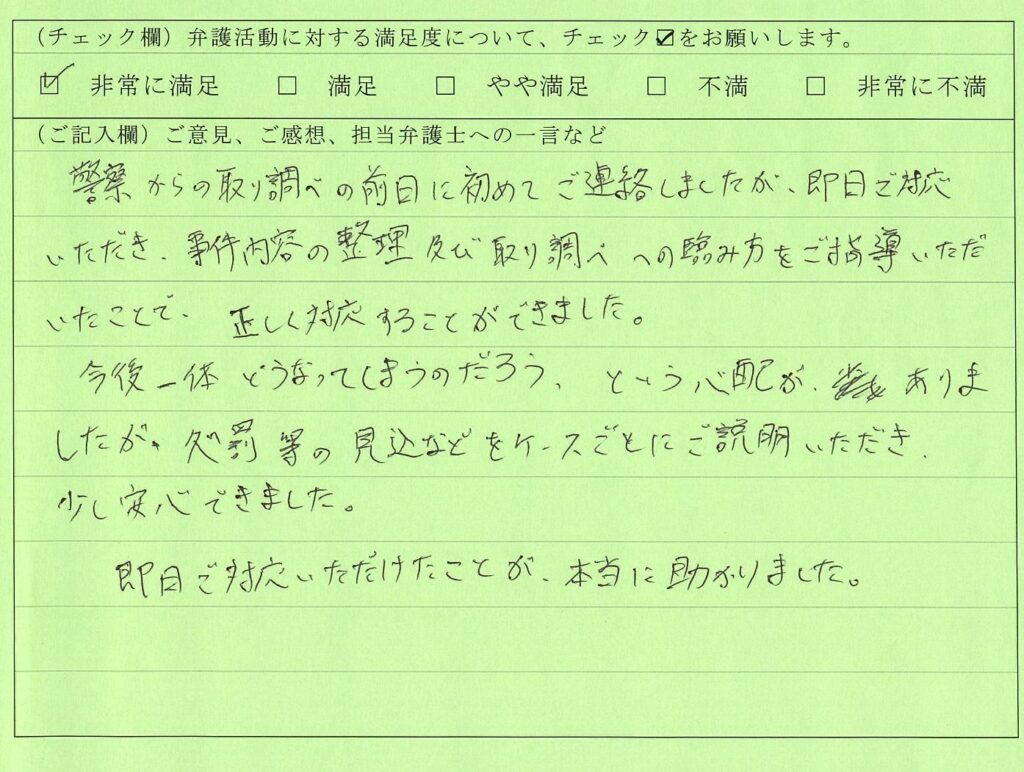 (チェック欄) 弁護活動に対する満足度について、チェック☑をお願いします。
☑ 非常に満足 □ 満足 □ やや満足 □ 不満 □ 非常に不満
(ご記入欄) ご意見、ご感想、担当弁護士への一言など
警察からの取り調べの前日に初めてご連絡しましたが、即日ご対応
いただき、事件内容の整理及び取り調べへの臨み方をご指導いただ
いたことで、正しく対応することができました。
今後一体どうなってしまうのだろう、という心配が、ありま
したが、処罰等の見込などをケースごとにご説明いただき、
少し安心できました。
即日ご対応いただけたことが、本当に助かりました。